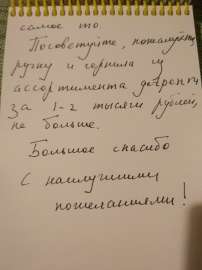 самое то.
Посоветуйте, пожалуйста,
ручку и чернила из
ассортимента до
за 1-2 тысячи рублей,
не больше.
Большое спасибо
С наилучшими
пожеланиями!